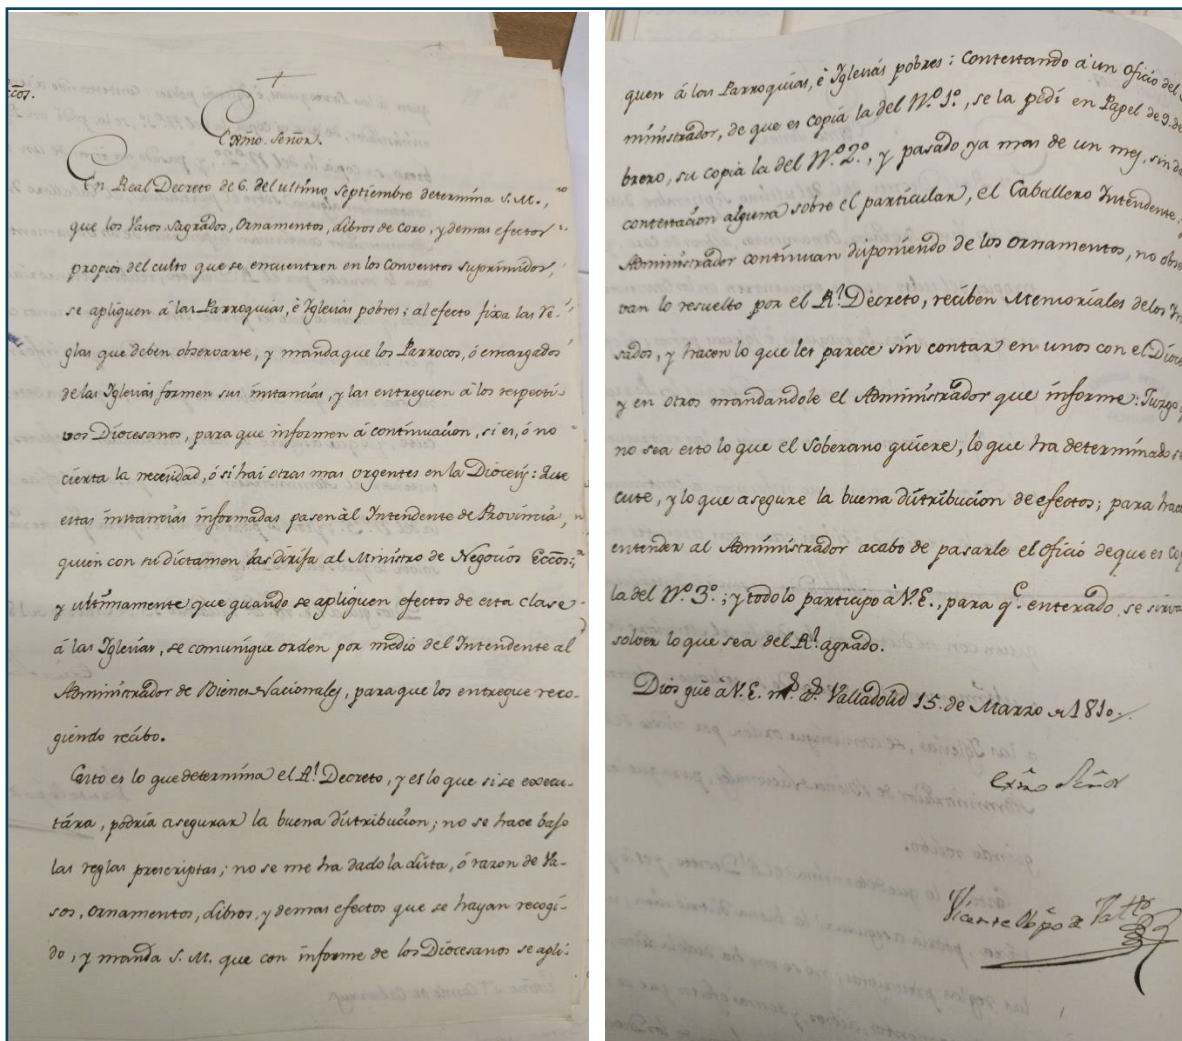 Eccos.
Exmo. Señor.
En Real Decreto de 6. del ultimo Septiembre determina S. M.,
que los Vasos sagrados, Ornamentos, Libros de Coro, y demas efectos
propios del culto que se encuentren en los Conventos suprimidos,
se apliquen á las Parroquias, è Iglesias pobres; al efecto fixa las Re-
glas que deben observarse, y manda que los Parrocos, ó encargados
de las Iglesias formen sus instancias, y las entreguen á los respecti-
vos Diocesanos, para que informen á continuacion, si es, ó no
cierta la necesidad, ó si hai otras mas urgentes en la Diocesis: que
estas instancias informadas pasen àl Intendente de Provincia,
quien con su dictamen las dirija al Ministro de Negocios Eccos;
y ultimamente que quando se apliquen efectos de esta clase
á las Iglesias, se comunique orden por medio del Intendente al
Administrador de Bienes Nacionales, para que los entregue reco-
giendo recibo.
Esto es lo que determina el Rl. Decreto, y es lo que si se execu-
tára, podria asegurar la buena distribucion; no se hace bajo
las reglas prescriptas; no se me ha dado la lista, ó razon de Va-
sos, Ornamentos, Libros, y demas efectos que se hayan recogi-
do, y manda S. M. que con informe de los Diocesanos se apli-
quen á las Parroquias, è Iglesias pobres: Contestando à un oficio del
ministrador, de que es copia la del Nº. 1º., se la pedi en Papel de 9. de
brero, su copia la del Nº. 2º., y pasado ya mas de un mes, sin
contestacion alguna sobre el particular, el Caballero Intendente,
Administrador continuan disponiendo de los ornamentos, no obser
van lo resuelto por el Rl. Decreto, reciben Memoriales de los
sados, y hacen lo que les parece sin contar en unos con el Dioce
y en otros mandandole el Administrador que informe: Juzgo
no sea esto lo que el Soberano quiere, lo que ha determinado se
cute, y lo que asegure la buena distribucion de efectos; para hace
entender al Administrador acabo de pasarle el oficio de que es Co
la del Nº. 3º.; y todo lo participo à V. E., para q.e enterado, se sirva
solver lo que sea del Rl. agrado.
Dios gue à V. E. ms. as. Valladolid 15. de Marzo de 1810.
Exmo Señor
Vicente Obpo de Vallid